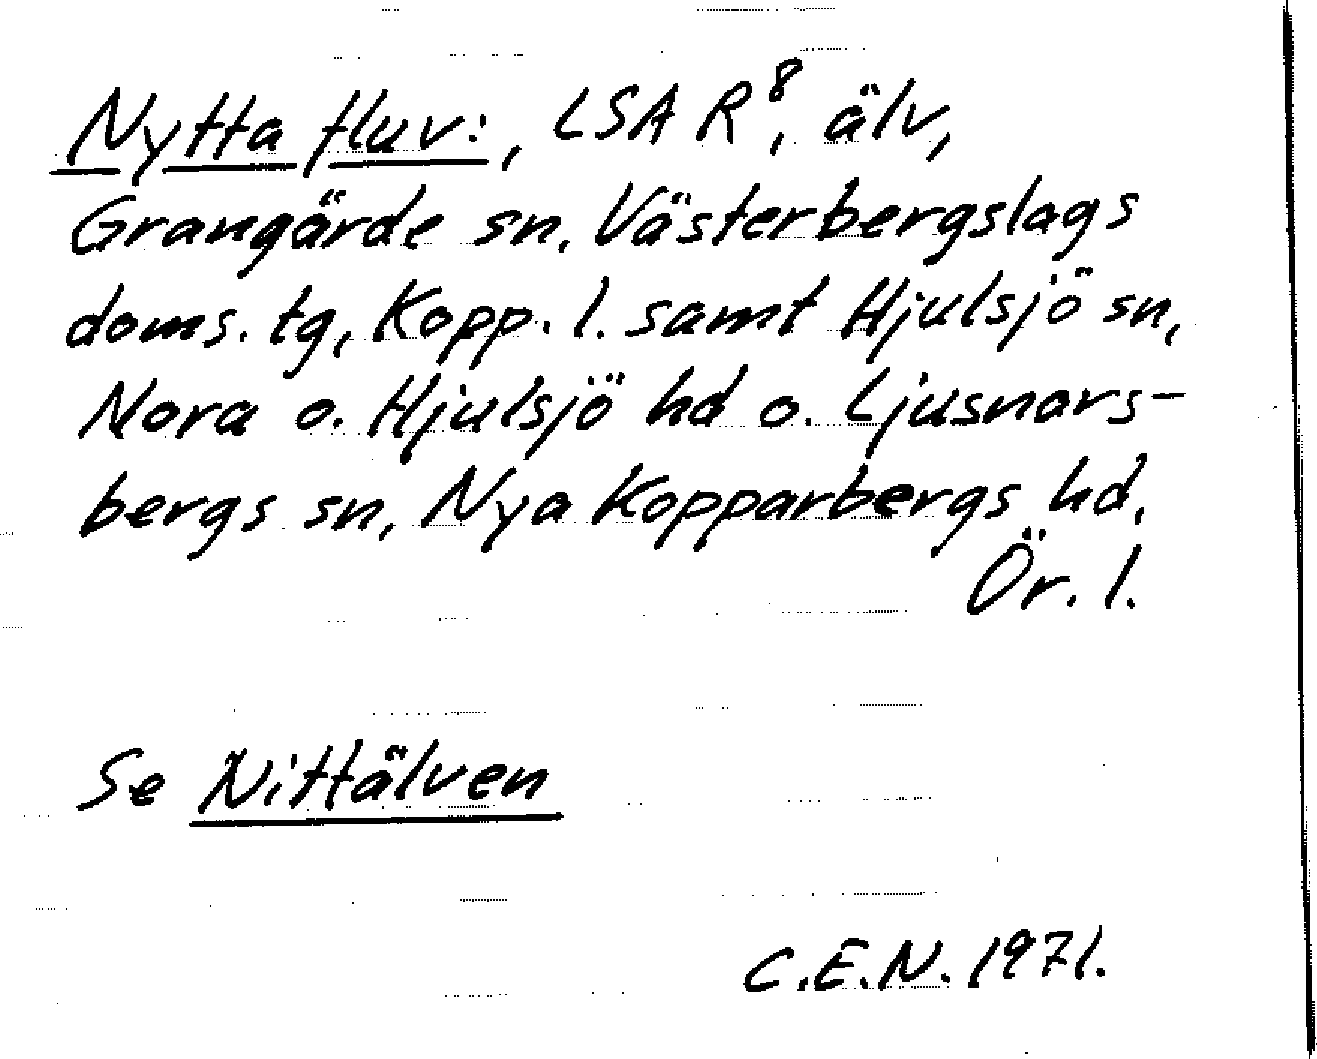 Nytta fluv:, LSA R⁸, älv,
Grangärde sn, Västerbergslags
doms. tg, Kopp. l. samt Hjulsjö sn,
Nora o. Hjulsjö hd o. Ljusnars-
bergs sn, Nya Kopparbergs hd,
Ör. l.
Se Nittälven
C.E.N. 1971.